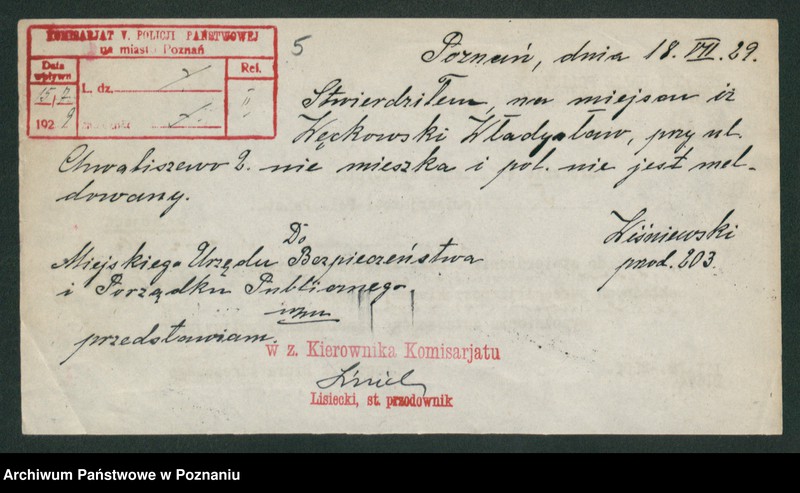 KOMISARJAT V. POLICJI PAŃSTWOWEJ
na miasto Poznań
Data wpływu
Ref.
15/7
L. dz.
II
192 9
5
Poznań, dnia 18. VII. 29.
Stwierdziłem, na miejscu iż
Węckowski Władysław, przy ul.
Chwaliszewo 2. nie mieszka i pol. nie jest mel-
dowany.
Wiśniewski
przod. 203.
Do
Miejskiego Urzędu Bezpieczeństwa
i Porządku Publicznego.
przedstawiam.
w z. Kierownika Komisarjatu
Lisiecki, st. przodownik
Archiwum Państwowe w Poznaniu